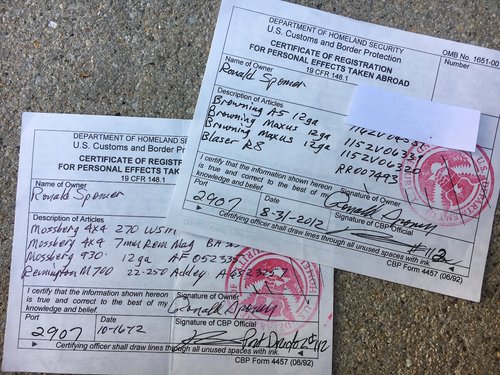 DEPARTMENT OF HOMELAND SECURITY
U.S. Customs and Border Protection
OMB No. 1651-00
CERTIFICATE OF REGISTRATION
FOR PERSONAL EFFECTS TAKEN ABROAD
19 CFR 148.1
Number
Name of Owner
Ronald Spomer
Description of Articles
Browning A5 12ga
Browning Maxus 12ga 1152V06335
Browning Maxus 12ga 1152V06320
Blaser R8 RR007493
I certify that the information shown hereon
is true and correct to the best of my
knowledge and belief.
Signature of Owner
Ronald Spomer
Port
2907
Date
8-31-2012
Signature of CBP Official
#112
Certifying officer shall draw lines through all unused spaces with ink.
CBP Form 4457 (06/92)
DEPARTMENT OF HOMELAND
U.S. Customs and Border Prot
CERTIFICATE OF REGISTRAT
FOR PERSONAL EFFECTS TAKEN A
19 CFR 148.1
Name of Owner
Ronald Spomer
Description of Articles
Mossberg 4x4 270 WSM
Mossberg 4x4 7mm Rem Mag
Mossberg 930 12ga
Remington M700 22-250
I certify that the information shown hereon
is true and correct to the best of my
knowledge and belief.
Signature of Owner
Ronald Spomer
Port
2907
Date
10-16-12
Signature of CBP Official
Certifying officer shall draw lines through all unused spaces with ink.
CBP Form 4457 (06/92)